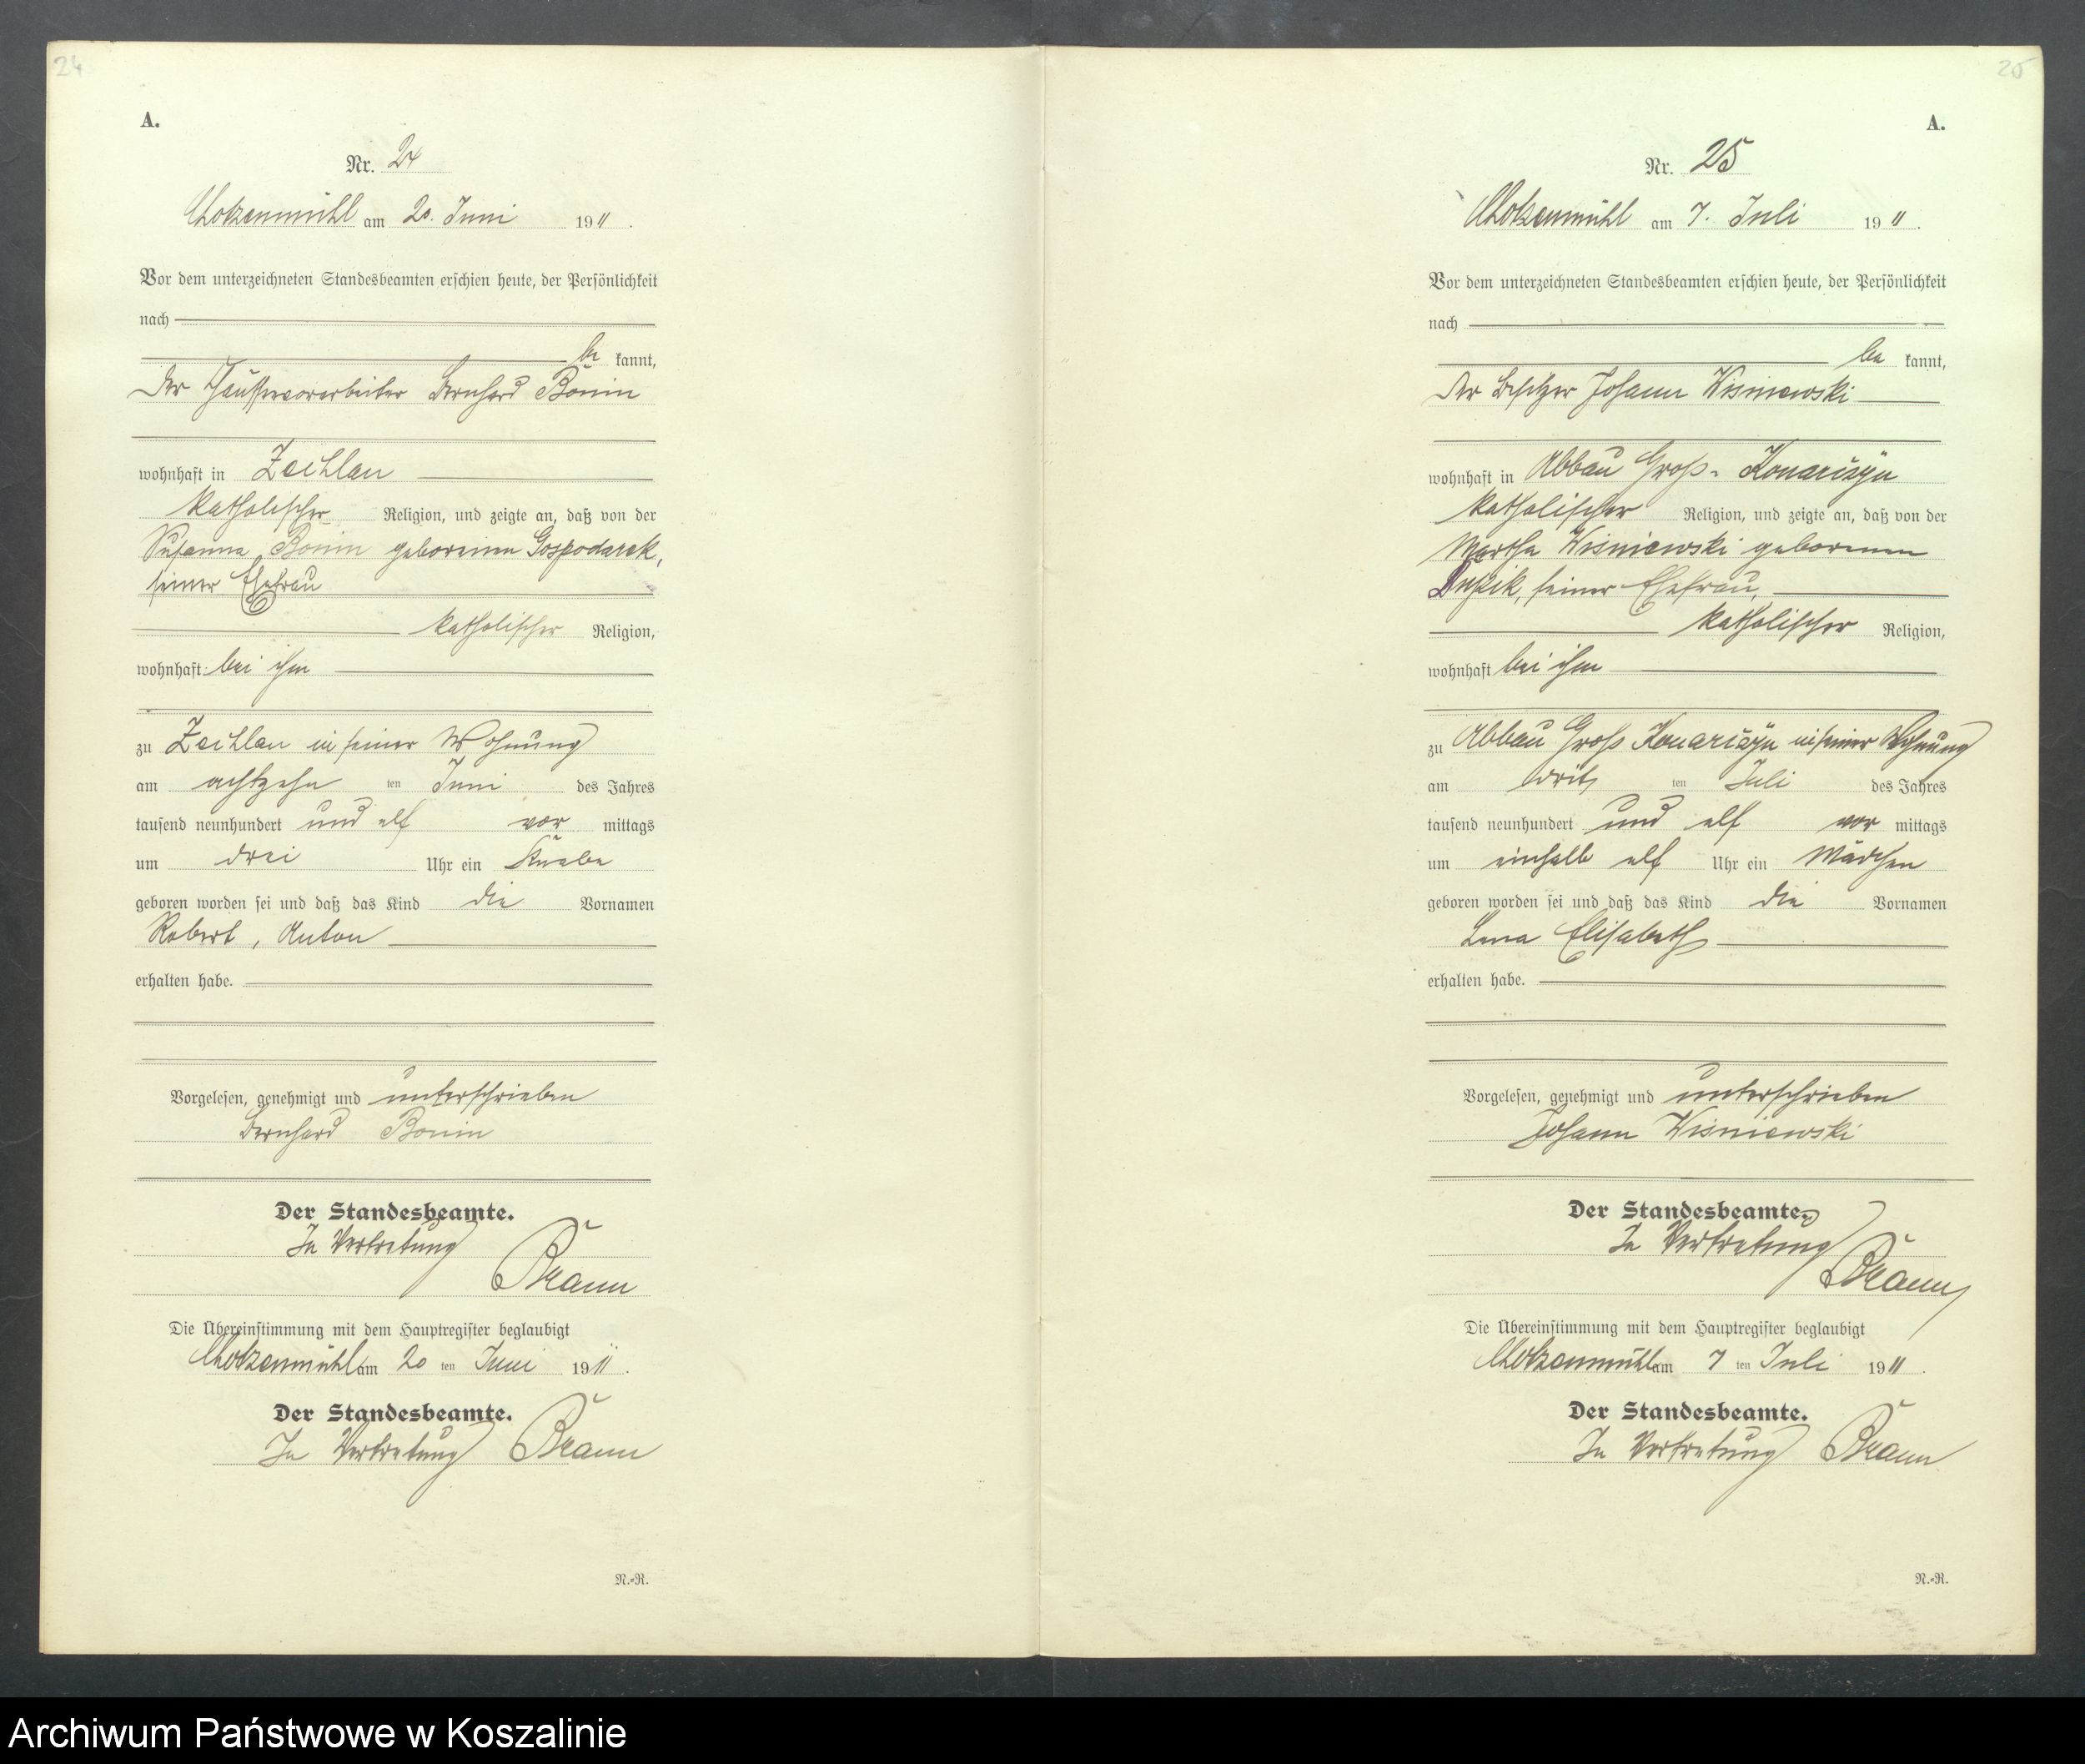 24
A.
Nr. 24
Chotzenmühl am 20. Juni 1911.
Vor dem unterzeichneten Standesbeamten erschien heute, der Persönlichkeit
nach
be kannt,
der Bernhard Bonin
wohnhaft in Zechlau
katholischer Religion, und zeigte an, daß von der
Susanna Bonin geborenen Gospodarek,
seiner Ehefrau
katholischer Religion,
wohnhaft bei ihm
zu Zechlau in seiner Wohnung
am achtzehn ten Juni des Jahres
tausend neunhundert und elf vor mittags
um drei Uhr ein Knabe
geboren worden sei und daß das Kind die Vornamen
Robert, Anton
erhalten habe.
Vorgelesen, genehmigt und unterschrieben
Bernhard Bonin
Der Standesbeamte.
In Vertretung
Braun
Die Übereinstimmung mit dem Hauptregister beglaubigt
Chotzenmühl am 20 ten Juni 1911.
Der Standesbeamte.
In Vertretung Braun
N.-R.
25
A.
Nr. 25
Chotzenmühl am 7. Juli 1911.
Vor dem unterzeichneten Standesbeamten erschien heute, der Persönlichkeit
nach
be kannt,
der Besitzer Johann Wisniewski
wohnhaft in Abbau Groß-Konarczyn
katholischer Religion, und zeigte an, daß von der
Martha Wisniewski geborenen
seiner Ehefrau,
katholischer Religion,
wohnhaft bei ihm
zu Abbau Groß Konarczyn in seiner Wohnung
am drit ten Juli des Jahres
tausend neunhundert und elf vor mittags
um einhalb elf Uhr ein Mädchen
geboren worden sei und daß das Kind die Vornamen
Lena Elisabeth
erhalten habe.
Vorgelesen, genehmigt und unterschrieben
Johann Wisniewski
Der Standesbeamte.
In Vertretung
Braun
Die Übereinstimmung mit dem Hauptregister beglaubigt
Chotzenmühl am 7 ten Juli 1911.
Der Standesbeamte.
In Vertretung Braun
N.-R.
Archiwum Państwowe w Koszalinie